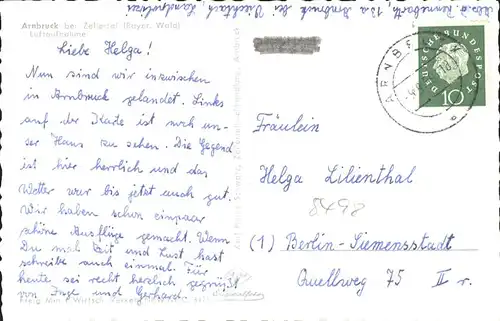 Arnbruck bei Zellertal (Bayer. Wald)
Luftaufnahme
bei
Liebe Helga!
Nun sind wir inzwischen
in Arnbruck gelandet. Links
auf der Karte ist noch un-
ser Haus zu sehen. Die Gegend
ist hier herrlich und das
Wetter war bis jetzt auch gut.
Wir haben schon ein paar
schöne Ausflüge gemacht. Wenn
Du mal Zeit und Lust hast
schreibe auch einmal. Für
heute sei recht herzlich gegrüßt
von Inge und Gerhard.
DEUTSCHE BUNDESPOST
10
ARNB
Fräulein
Helga Lilienthal
8498
(1) Berlin-Siemensstadt
Quellweg 75 II r.